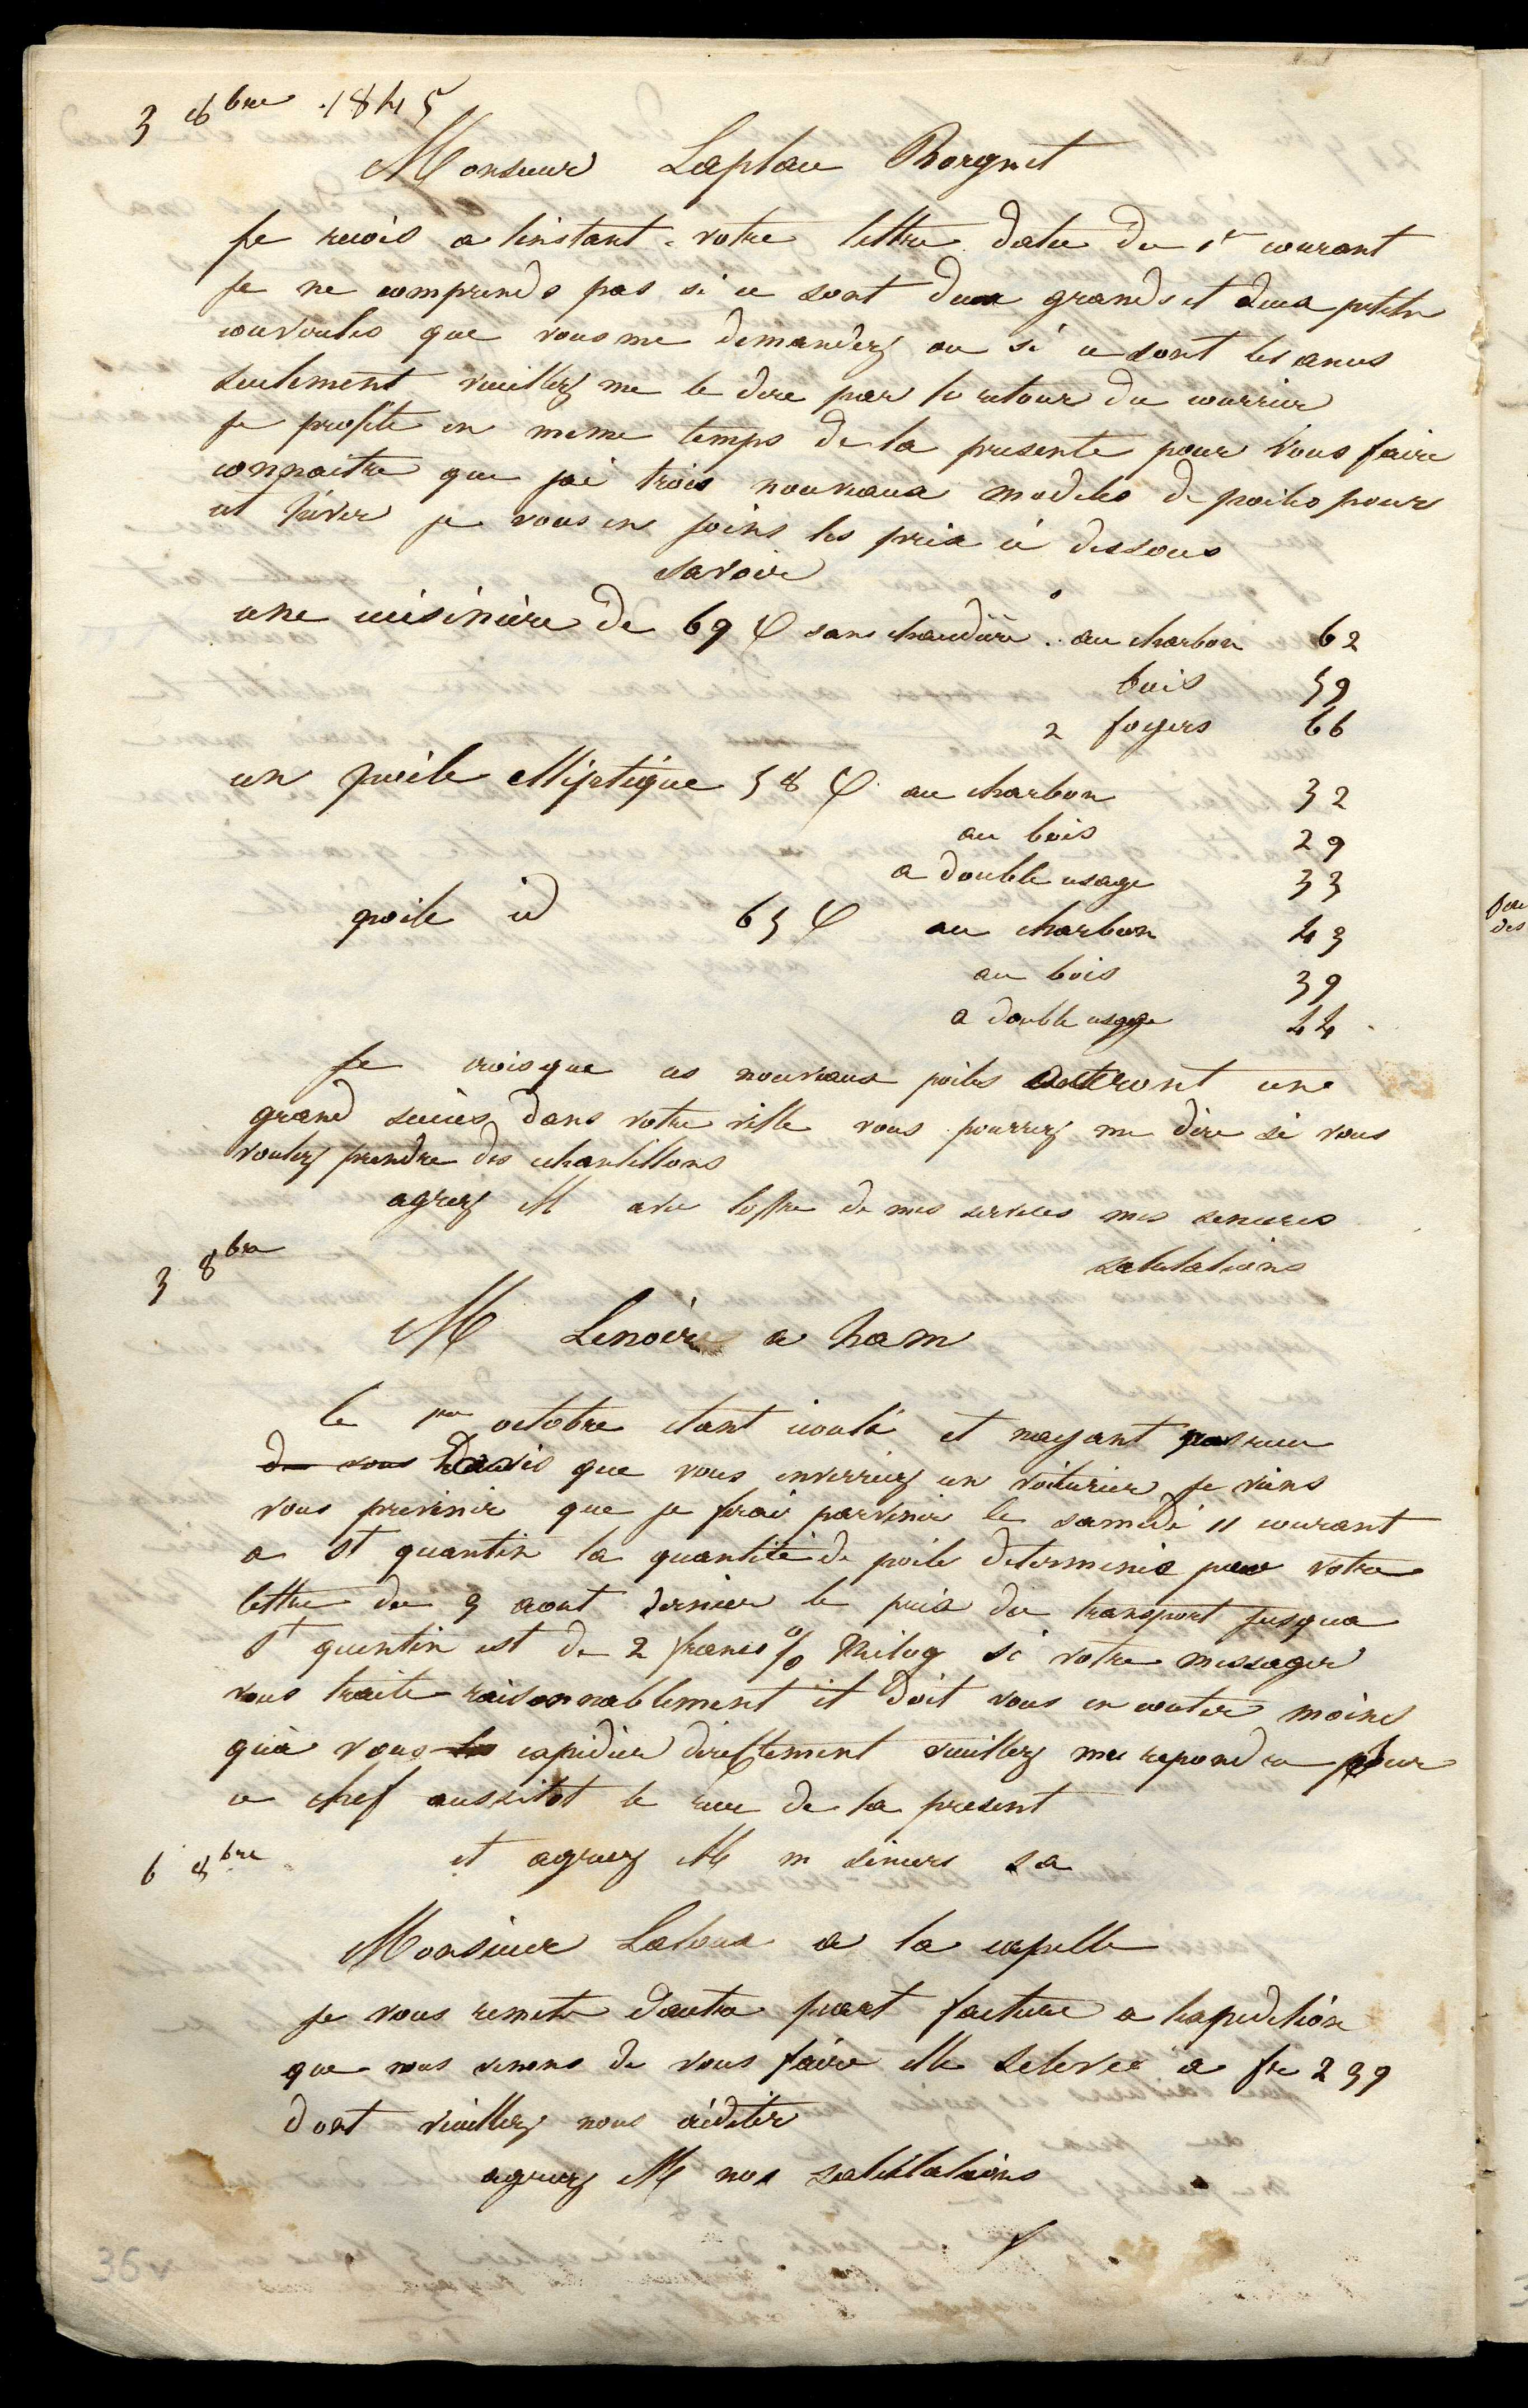 3 8bre 1845
Monsieur Laplau Borgnet
je recois a linstant votre lettre datee du 1er courant
je ne comprends pas si ce sont deux grands et deux petits
couvercles que vous me demandez ou si ce sont les anus
seulement veuillez me le dire par le retour du courrier
je profite en meme temps de la presente pour vous faire
connaitre que jai trois nouveaux modeles de poiles pour
cet hiver je vous en joins les prix ci dessous
savoir
une cuisinière de 69 C sans chaudiere au charbon 62
bois 59
2 foyers 66
un poile elliptique 58 C au charbon 32
au bois 29
a double usage 33
poile id 65 C au charbon 43
au bois 39
a double usage 44
je crois que ces nouveaux poiles auront une
grand succès dans votre ville vous pourrez me dire si vous
voulez prendre des echantillons
agreez M avec loffre de mes services mes sinceres
salutations
3 8bre
M Lenoir a ham
le 1er octobre etant ecoulé et nayant pas recu
de vous davis que vous enverriez un voiturier je viens
vous prevenir que je ferai parvenir le samedi 11 courant
a St quantin la quantité de poile determinée par votre
lettre du 9 aout dernier le prix du transport jusqua
St quentin est de 2 francs % kilog si votre messager
vous traite raisonnablement it doit vous en couter moins
qua vous les expedier directement veuillez me repondre pour
ce chef aussitot le recu de la present
et agreez M m sinceres sa
6 8bre
Monsieur Laloux a la capelle
je vous remets dautre part facture a lexpedition
que nous venons de vous faire elle seleve a fr 239
dont veuillez nous créditer
agreez M nos salutations
36v